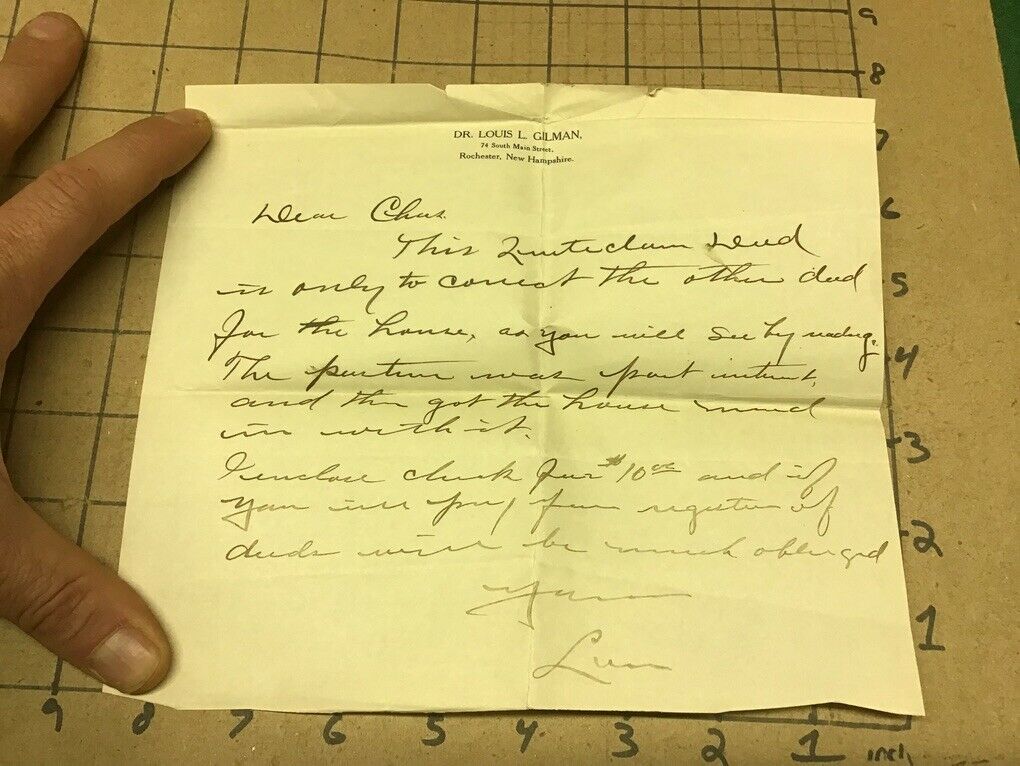 DR. LOUIS L. GILMAN,
74 South Main Street.
Rochester, New Hampshire.
Dear Chas.
This Quiteclaim Deed
is only to correct the other deed
for the house, as you will see by reading.
The was part interest,
and then got the house mixed
in with it.
I enclose check for $10.00 and if
you will pay for register of
deeds will be much obliged
Yours
9
8
7
6
5
4
3
2
1
9 8 7 6 5 4 3 2 1 inch